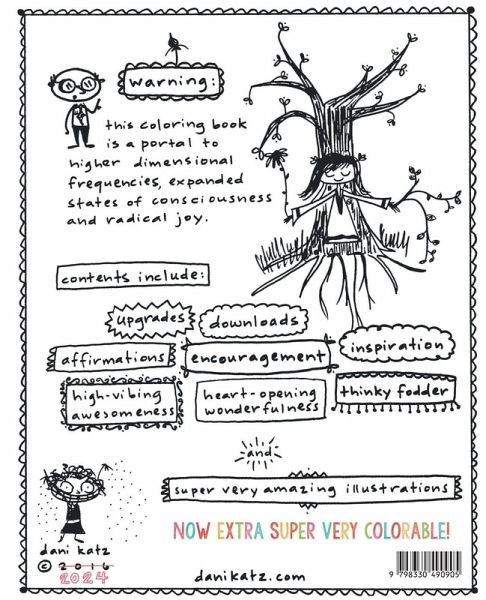 warning:
this coloring book
is a portal to
higher dimensional
frequencies, expanded
states of consciousness
and radical joy.
contents include:
upgrades
downloads
inspiration
affirmations
encouragement
high-vibing
awesomeness
heart-opening
wonderfulness
thinky fodder
and
super very amazing illustrations
NOW EXTRA SUPER VERY COLORABLE!
dani katz
© 2016
2024
danikatz.com
9 798330 490905